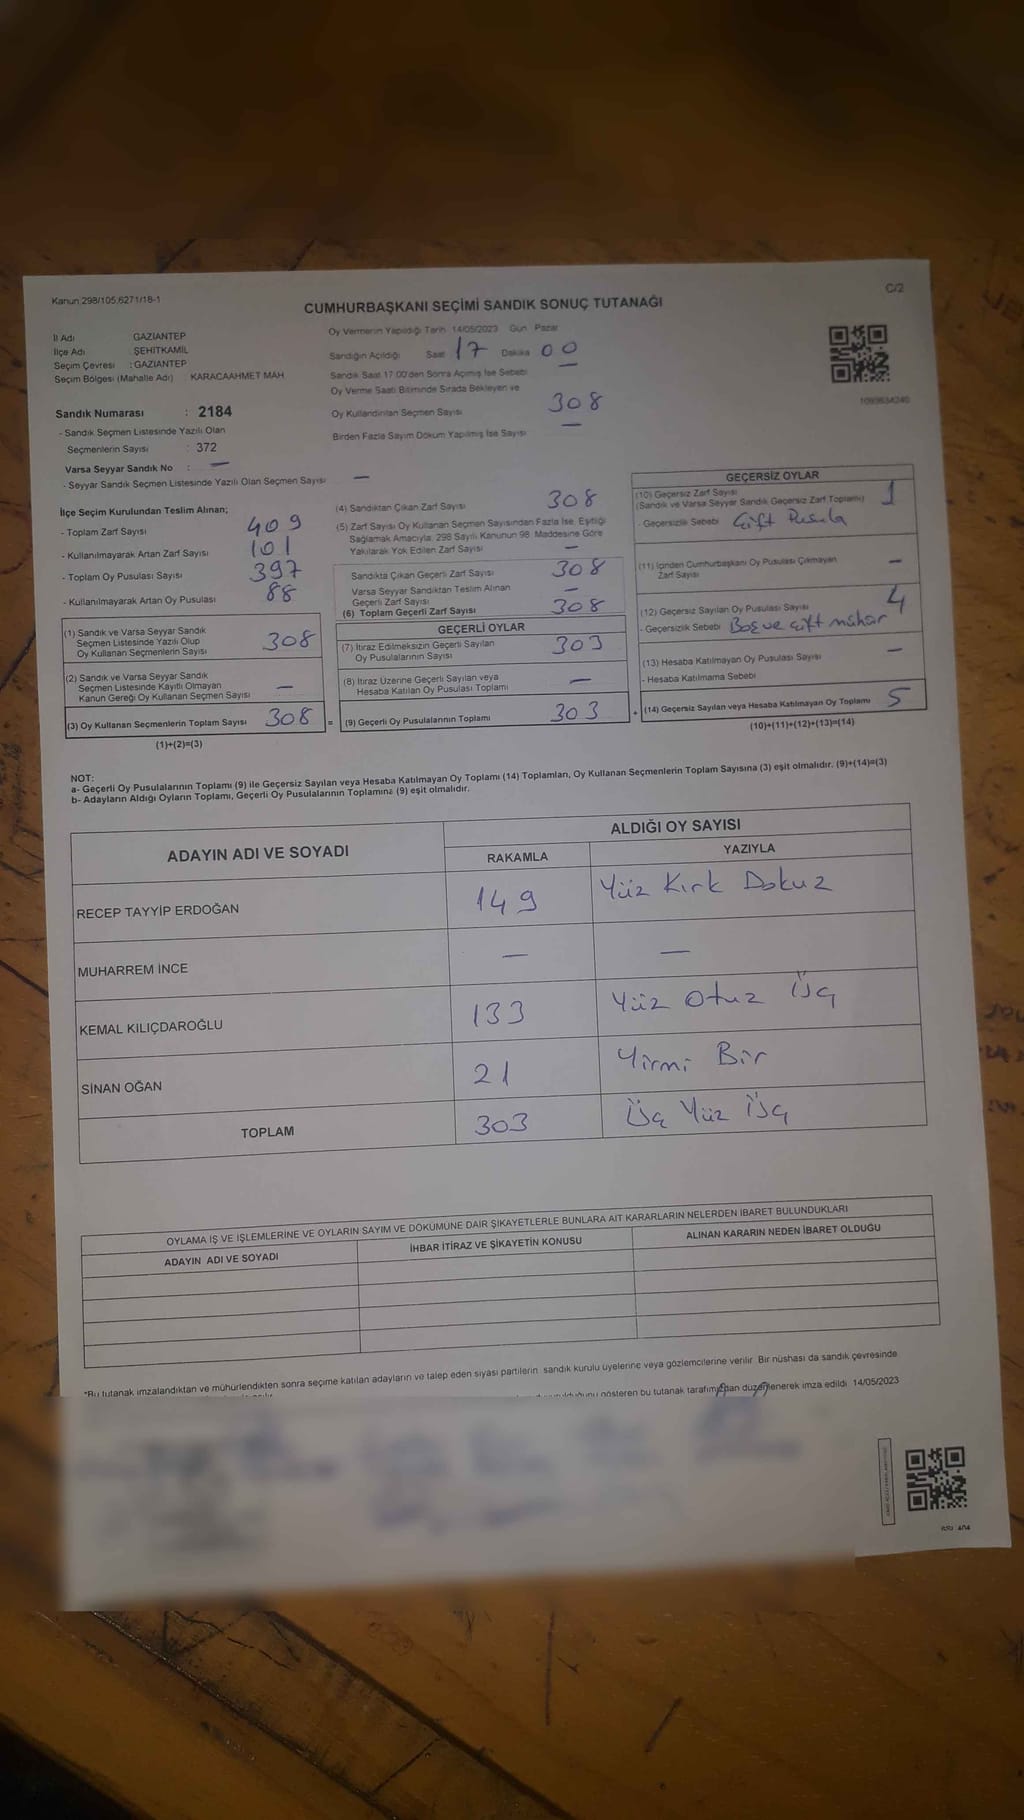 Kanun 298/105,6271/18-1
C/2
CUMHURBAŞKANI SEÇİMİ SANDIK SONUÇ TUTANAĞI
İl Adı GAZİANTEP
İlçe Adı ŞEHİTKAMİL
Seçim Çevresi : GAZİANTEP
Seçim Bölgesi (Mahalle Adı) KARACAAHMET MAH
Sandık Numarası : 2184
- Sandık Seçmen Listesinde Yazılı Olan
Seçmenlerin Sayısı : 372
Varsa Seyyar Sandık No : —
- Seyyar Sandık Seçmen Listesinde Yazılı Olan Seçmen Sayısı —
Oy Vermenin Yapıldığı Tarih 14/05/2023 Gün Pazar
Sandığın Açıldığı Saat 17 Dakika 00
Sandık Saat 17.00'den Sonra Açılmış İse Sebebi —
Oy Verme Saati Bitiminde Sırada Bekleyen ve
Oy Kullandırılan Seçmen Sayısı 308
Birden Fazla Sayım Döküm Yapılmış İse Sayısı —
İlçe Seçim Kurulundan Teslim Alınan;
- Toplam Zarf Sayısı 409
- Kullanılmayarak Artan Zarf Sayısı 101
- Toplam Oy Pusulası Sayısı 397
- Kullanılmayarak Artan Oy Pusulası 88
(1) Sandık ve Varsa Seyyar Sandık
Seçmen Listesinde Yazılı Olup
Oy Kullanan Seçmenlerin Sayısı 308
(2) Sandık ve Varsa Seyyar Sandık
Seçmen Listesinde Kayıtlı Olmayan
Kanun Gereği Oy Kullanan Seçmen Sayısı —
(3) Oy Kullanan Seçmenlerin Toplam Sayısı 308 =
(1)+(2)=(3)
(4) Sandıktan Çıkan Zarf Sayısı 308
(5) Zarf Sayısı Oy Kullanan Seçmen Sayısından Fazla İse, Eşitliği
Sağlamak Amacıyla, 298 Sayılı Kanunun 98. Maddesine Göre
Yakılarak Yok Edilen Zarf Sayısı —
Sandıkta Çıkan Geçerli Zarf Sayısı 308
Varsa Seyyar Sandıktan Teslim Alınan
Geçerli Zarf Sayısı —
(6) Toplam Geçerli Zarf Sayısı 308
GEÇERLİ OYLAR
(7) İtiraz Edilmeksizin Geçerli Sayılan
Oy Pusulalarının Sayısı 303
(8) İtiraz Üzerine Geçerli Sayılan veya
Hesaba Katılan Oy Pusulası Toplamı —
(9) Geçerli Oy Pusulalarının Toplamı 303 +
GEÇERSİZ OYLAR
(10) Geçersiz Zarf Sayısı
(Sandık ve Varsa Seyyar Sandık Geçersiz Zarf Toplamı) 1
- Geçersizlik Sebebi Çift Pusula
(11) İçinden Cumhurbaşkanı Oy Pusulası Çıkmayan
Zarf Sayısı —
(12) Geçersiz Sayılan Oy Pusulası Sayısı 4
- Geçersizlik Sebebi Boş ve çift mühür
(13) Hesaba Katılmayan Oy Pusulası Sayısı —
- Hesaba Katılmama Sebebi
(14) Geçersiz Sayılan veya Hesaba Katılmayan Oy Toplamı 5
(10)+(11)+(12)+(13)=(14)
NOT:
a- Geçerli Oy Pusulalarının Toplamı (9) ile Geçersiz Sayılan veya Hesaba Katılmayan Oy Toplamı (14) Toplamları, Oy Kullanan Seçmenlerin Toplam Sayısına (3) eşit olmalıdır. (9)+(14)=(3)
b- Adayların Aldığı Oyların Toplamı, Geçerli Oy Pusulalarının Toplamına (9) eşit olmalıdır.
ADAYIN ADI VE SOYADI ALDIĞI OY SAYISI
RAKAMLA YAZIYLA
RECEP TAYYİP ERDOĞAN 149 Yüz Kırk Dokuz
MUHARREM İNCE — —
KEMAL KILIÇDAROĞLU 133 Yüz Otuz Üç
SİNAN OĞAN 21 Yirmi Bir
TOPLAM 303 Üç Yüz Üç
OYLAMA İŞ VE İŞLEMLERİNE VE OYLARIN SAYIM VE DÖKÜMÜNE DAİR ŞİKAYETLERLE BUNLARA AİT KARARLARIN NELERDEN İBARET BULUNDUKLARI
ADAYIN ADI VE SOYADI İHBAR İTİRAZ VE ŞİKAYETİN KONUSU ALINAN KARARIN NEDEN İBARET OLDUĞU
*Bu tutanak imzalandıktan ve mühürlendikten sonra seçime katılan adayların ve talep eden siyasi partilerin sandık kurulu üyelerine veya gözlemcilerine verilir. Bir nüshası da sandık çevresinde
gösteren bu tutanak tarafımızdan düzenlenerek imza edildi. 14/05/2023